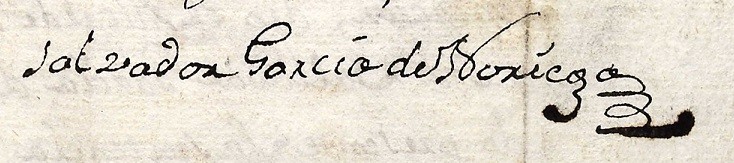 Salvador Garcia de Noriega